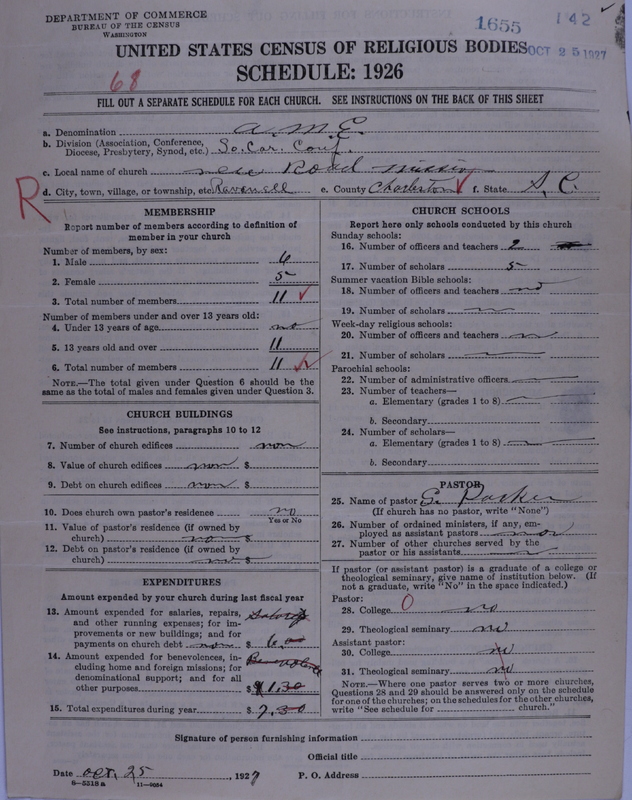 DEPARTMENT OF COMMERCE
BUREAU OF THE CENSUS
WASHINGTON
1655
142
OCT 25 1927
UNITED STATES CENSUS OF RELIGIOUS BODIES
SCHEDULE: 1926
68
FILL OUT A SEPARATE SCHEDULE FOR EACH CHURCH. SEE INSTRUCTIONS ON THE BACK OF THIS SHEET
a. Denomination A. M. E.
b. Division (Association, Conference, Diocese, Presbytery, Synod, etc.) So. Car. Conf.
c. Local name of church Road mission
R
d. City, town, village, or township, etc. Ravenell e. County Charleston f. State S. C.
MEMBERSHIP
Report number of members according to definition of
member in your church
Number of members, by sex:
1. Male 6
2. Female 5
3. Total number of members 11
Number of members under and over 13 years old:
4. Under 13 years of age no
5. 13 years old and over 11
6. Total number of members 11
NOTE.—The total given under Question 6 should be the
same as the total of males and females given under Question 3.
CHURCH BUILDINGS
See instructions, paragraphs 10 to 12
7. Number of church edifices non
8. Value of church edifices non $
9. Debt on church edifices non $
10. Does church own pastor's residence no
Yes or No
11. Value of pastor's residence (if owned by
church) no $
12. Debt on pastor's residence (if owned by
church) $
EXPENDITURES
Amount expended by your church during last fiscal year
13. Amount expended for salaries, repairs,
and other running expenses; for im-
provements or new buildings; and for
payments on church debt non $ 6.00
14. Amount expended for benevolences, in-
cluding home and foreign missions; for
denominational support; and for all
other purposes $ 1.30
15. Total expenditures during year $ 7.30
CHURCH SCHOOLS
Report here only schools conducted by this church
Sunday schools:
16. Number of officers and teachers 2
17. Number of scholars 5
Summer vacation Bible schools:
18. Number of officers and teachers no
19. Number of scholars
Week-day religious schools:
20. Number of officers and teachers
21. Number of scholars
Parochial schools:
22. Number of administrative officers
23. Number of teachers—
a. Elementary (grades 1 to 8)
b. Secondary
24. Number of scholars—
a. Elementary (grades 1 to 8)
b. Secondary
PASTOR
25. Name of pastor Parker
(If church has no pastor, write "None")
26. Number of ordained ministers, if any, em-
ployed as assistant pastors
27. Number of other churches served by the
pastor or his assistants
If pastor (or assistant pastor) is a graduate of a college or
theological seminary, give name of institution below. (If
not a graduate, write "No" in the space indicated.)
Pastor:
28. College 0 no
29. Theological seminary no
Assistant pastor:
30. College no
31. Theological seminary no
NOTE.—Where one pastor serves two or more churches,
Questions 28 and 29 should be answered only on the schedule
for one of the churches; on the schedules for the other churches,
write "See schedule for church."
Signature of person furnishing information
Official title
Date Oct. 25, 1927 P. O. Address
6-5318a 11-9084